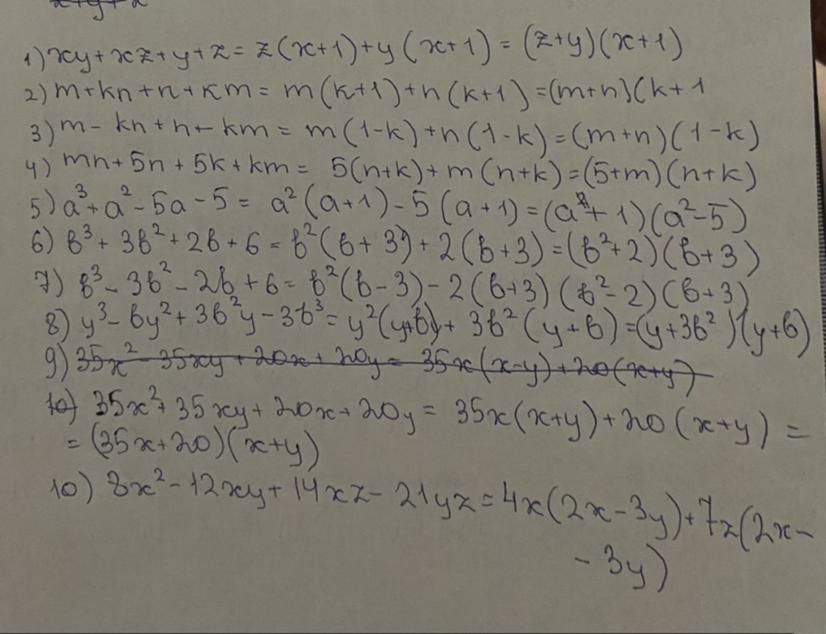 x+y+z
1) xy+xz+y+z = z(x+1)+y(x+1) = (z+y)(x+1)
2) m+kn+n+km = m(k+1)+n(k+1) = (m+n)(k+1
3) m-kn+n-km = m(1-k)+n(1-k) = (m+n)(1-k)
4) mn+5n+5k+km = 5(n+k)+m(n+k) = (5+m)(n+k)
5) a³+a²-5a-5 = a²(a+1)-5(a+1) = (a+1)(a²-5)
6) b³+3b²+2b+6 = b²(b+3)+2(b+3) = (b²+2)(b+3)
7) b³-3b²-2b+6 = b²(b-3)-2(b+3) (b²-2)(b+3)
8) y³-by²+3b²y-3b³ = y²(y+b)+3b²(y+b) = (y+3b²)(y+b)
9) 35x²-35xy+20x+20y = 35x(x-y)+20(x+y)
10) 35x²+35xy+20x+20y = 35x(x+y)+20(x+y) =
= (35x+20)(x+y)
10) 8x²-12xy+14xz-21yz = 4x(2x-3y)+7z(2x-
-3y)